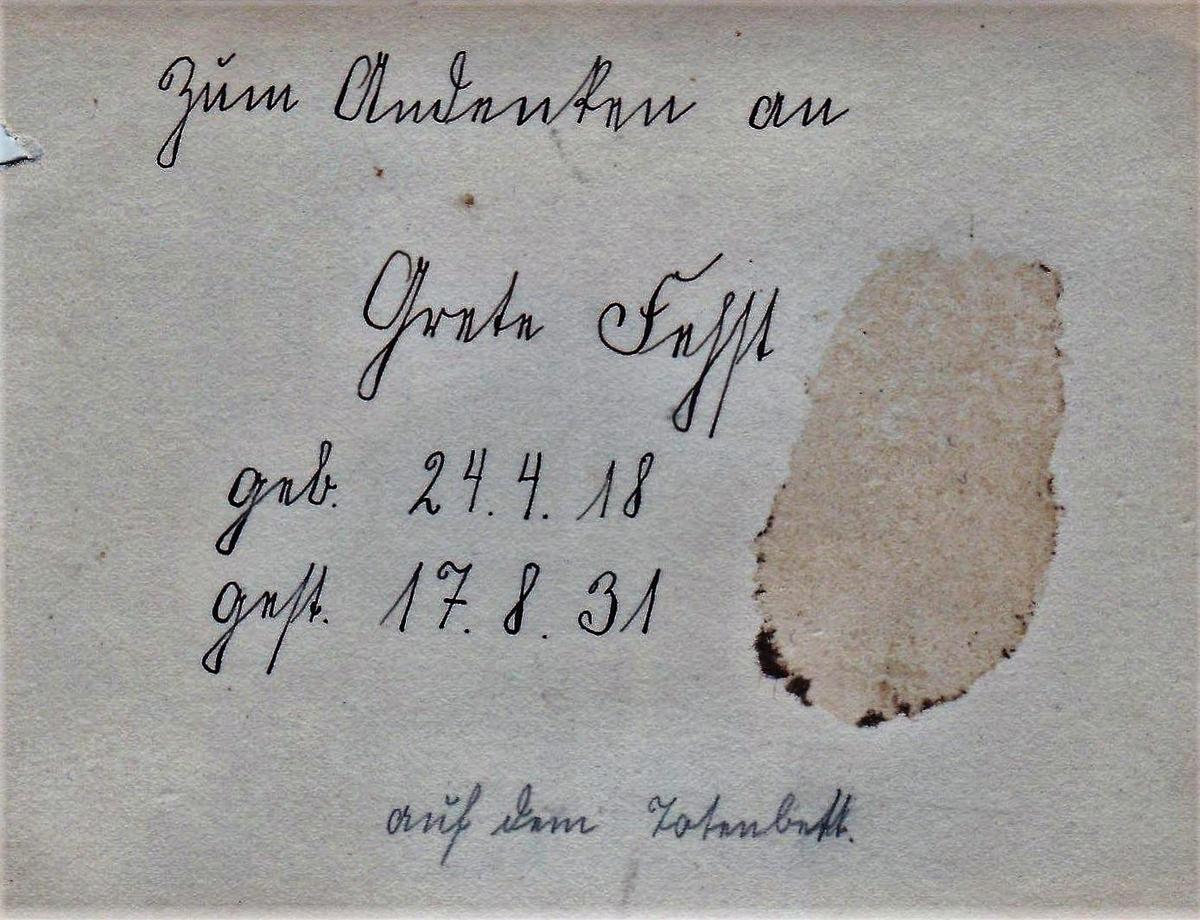 Zum Andenken an
Grete Fehst
geb. 24.4.18
gest. 17.8.31
auf dem Totenbett.